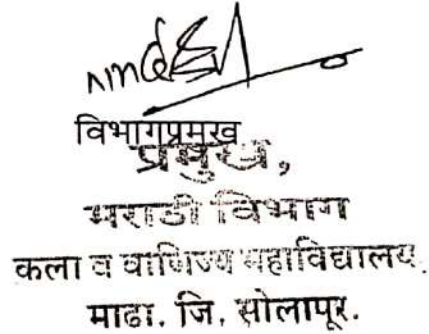 विभागप्रमुख
प्रमुख,
मराठी विभाग
कला व वाणिज्य महाविद्यालय
माढा. जि. सोलापूर.